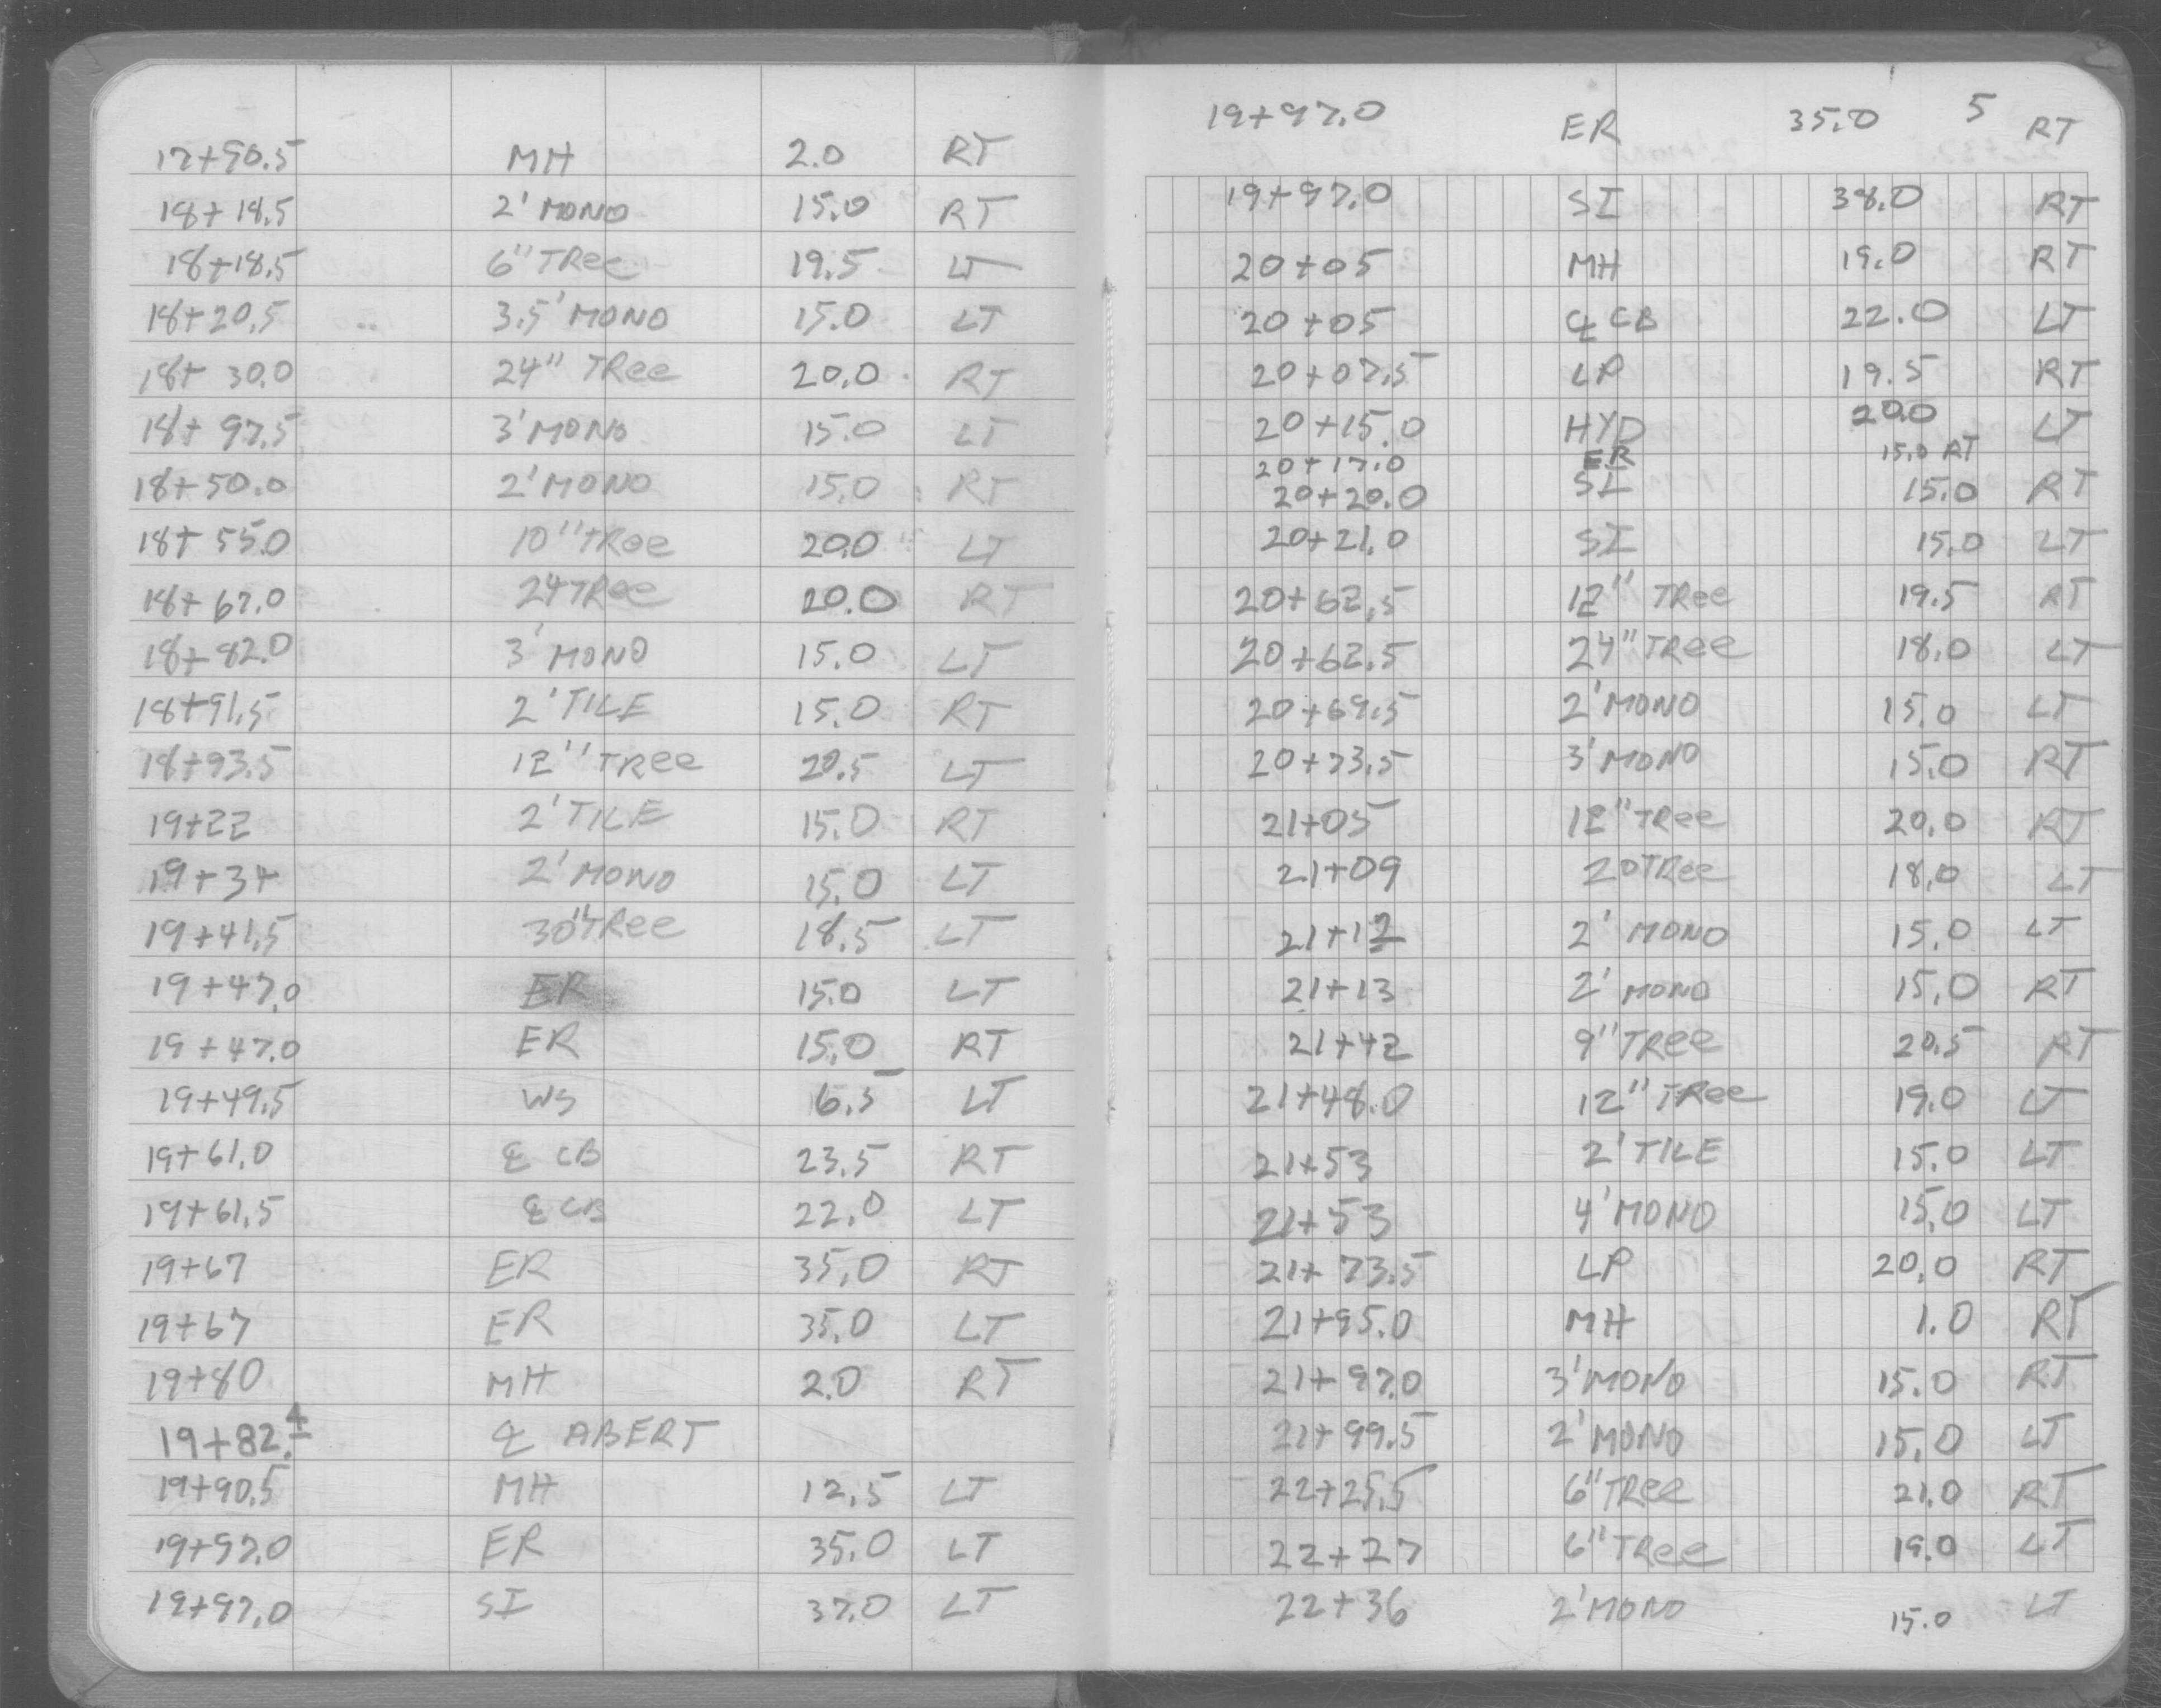 17+90.5 MH 2.0 RT
18+18.5 2' MONO 15.0 RT
18+18.5 6" TRee 19.5 LT
18+20.5 3.5' MONO 15.0 LT
18+30.0 24" TRee 20.0 RT
18+97.5 3' MONO 15.0 LT
18+50.0 2' MONO 15.0 RT
18+55.0 10" TRee 20.0 LT
18+67.0 24 TRee 20.0 RT
18+82.0 3' MONO 15.0 LT
18+91.5 2' TILE 15.0 RT
18+93.5 12" TRee 20.5 LT
19+22 2' TILE 15.0 RT
19+34 2' MONO 15.0 LT
19+41.5 30" TRee 18.5 LT
19+47.0 ER 15.0 LT
19+47.0 ER 15.0 RT
19+49.5 WS 6.5 LT
19+61.0 ℄ CB 23.5 RT
19+61.5 ℄ CB 22.0 LT
19+67 ER 35.0 RT
19+67 ER 35.0 LT
19+80 MH 2.0 RT
19+82.4 ℄ ABERT
19+90.5 MH 12.5 LT
19+97.0 ER 35.0 LT
19+97.0 SI 37.0 LT
5
19+97.0 ER 35.0 RT
19+97.0 SI 38.0 RT
20+05 MH 19.0 RT
20+05 ℄ CB 22.0 LT
20+07.5 LP 19.5 RT
20+15.0 HYD 20.0 LT
20+17.0 ER 15.0 RT
20+20.0 SI 15.0 RT
20+21.0 SI 15.0 LT
20+62.5 12" TRee 19.5 RT
20+62.5 24" TRee 18.0 LT
20+69.5 2' MONO 15.0 LT
20+73.5 3' MONO 15.0 RT
21+05 12" TRee 20.0 RT
21+09 20 TRee 18.0 LT
21+12 2' MONO 15.0 LT
21+13 2' MONO 15.0 RT
21+42 9" TRee 20.5 RT
21+48.0 12" TRee 19.0 LT
21+53 2' TILE 15.0 LT
21+53 4' MONO 15.0 LT
21+73.5 LP 20.0 RT
21+95.0 MH 1.0 RT
21+97.0 3' MONO 15.0 RT
21+99.5 2' MONO 15.0 LT
22+25.5 6" TRee 21.0 RT
22+27 6" TRee 19.0 LT
22+36 2' MONO 15.0 LT